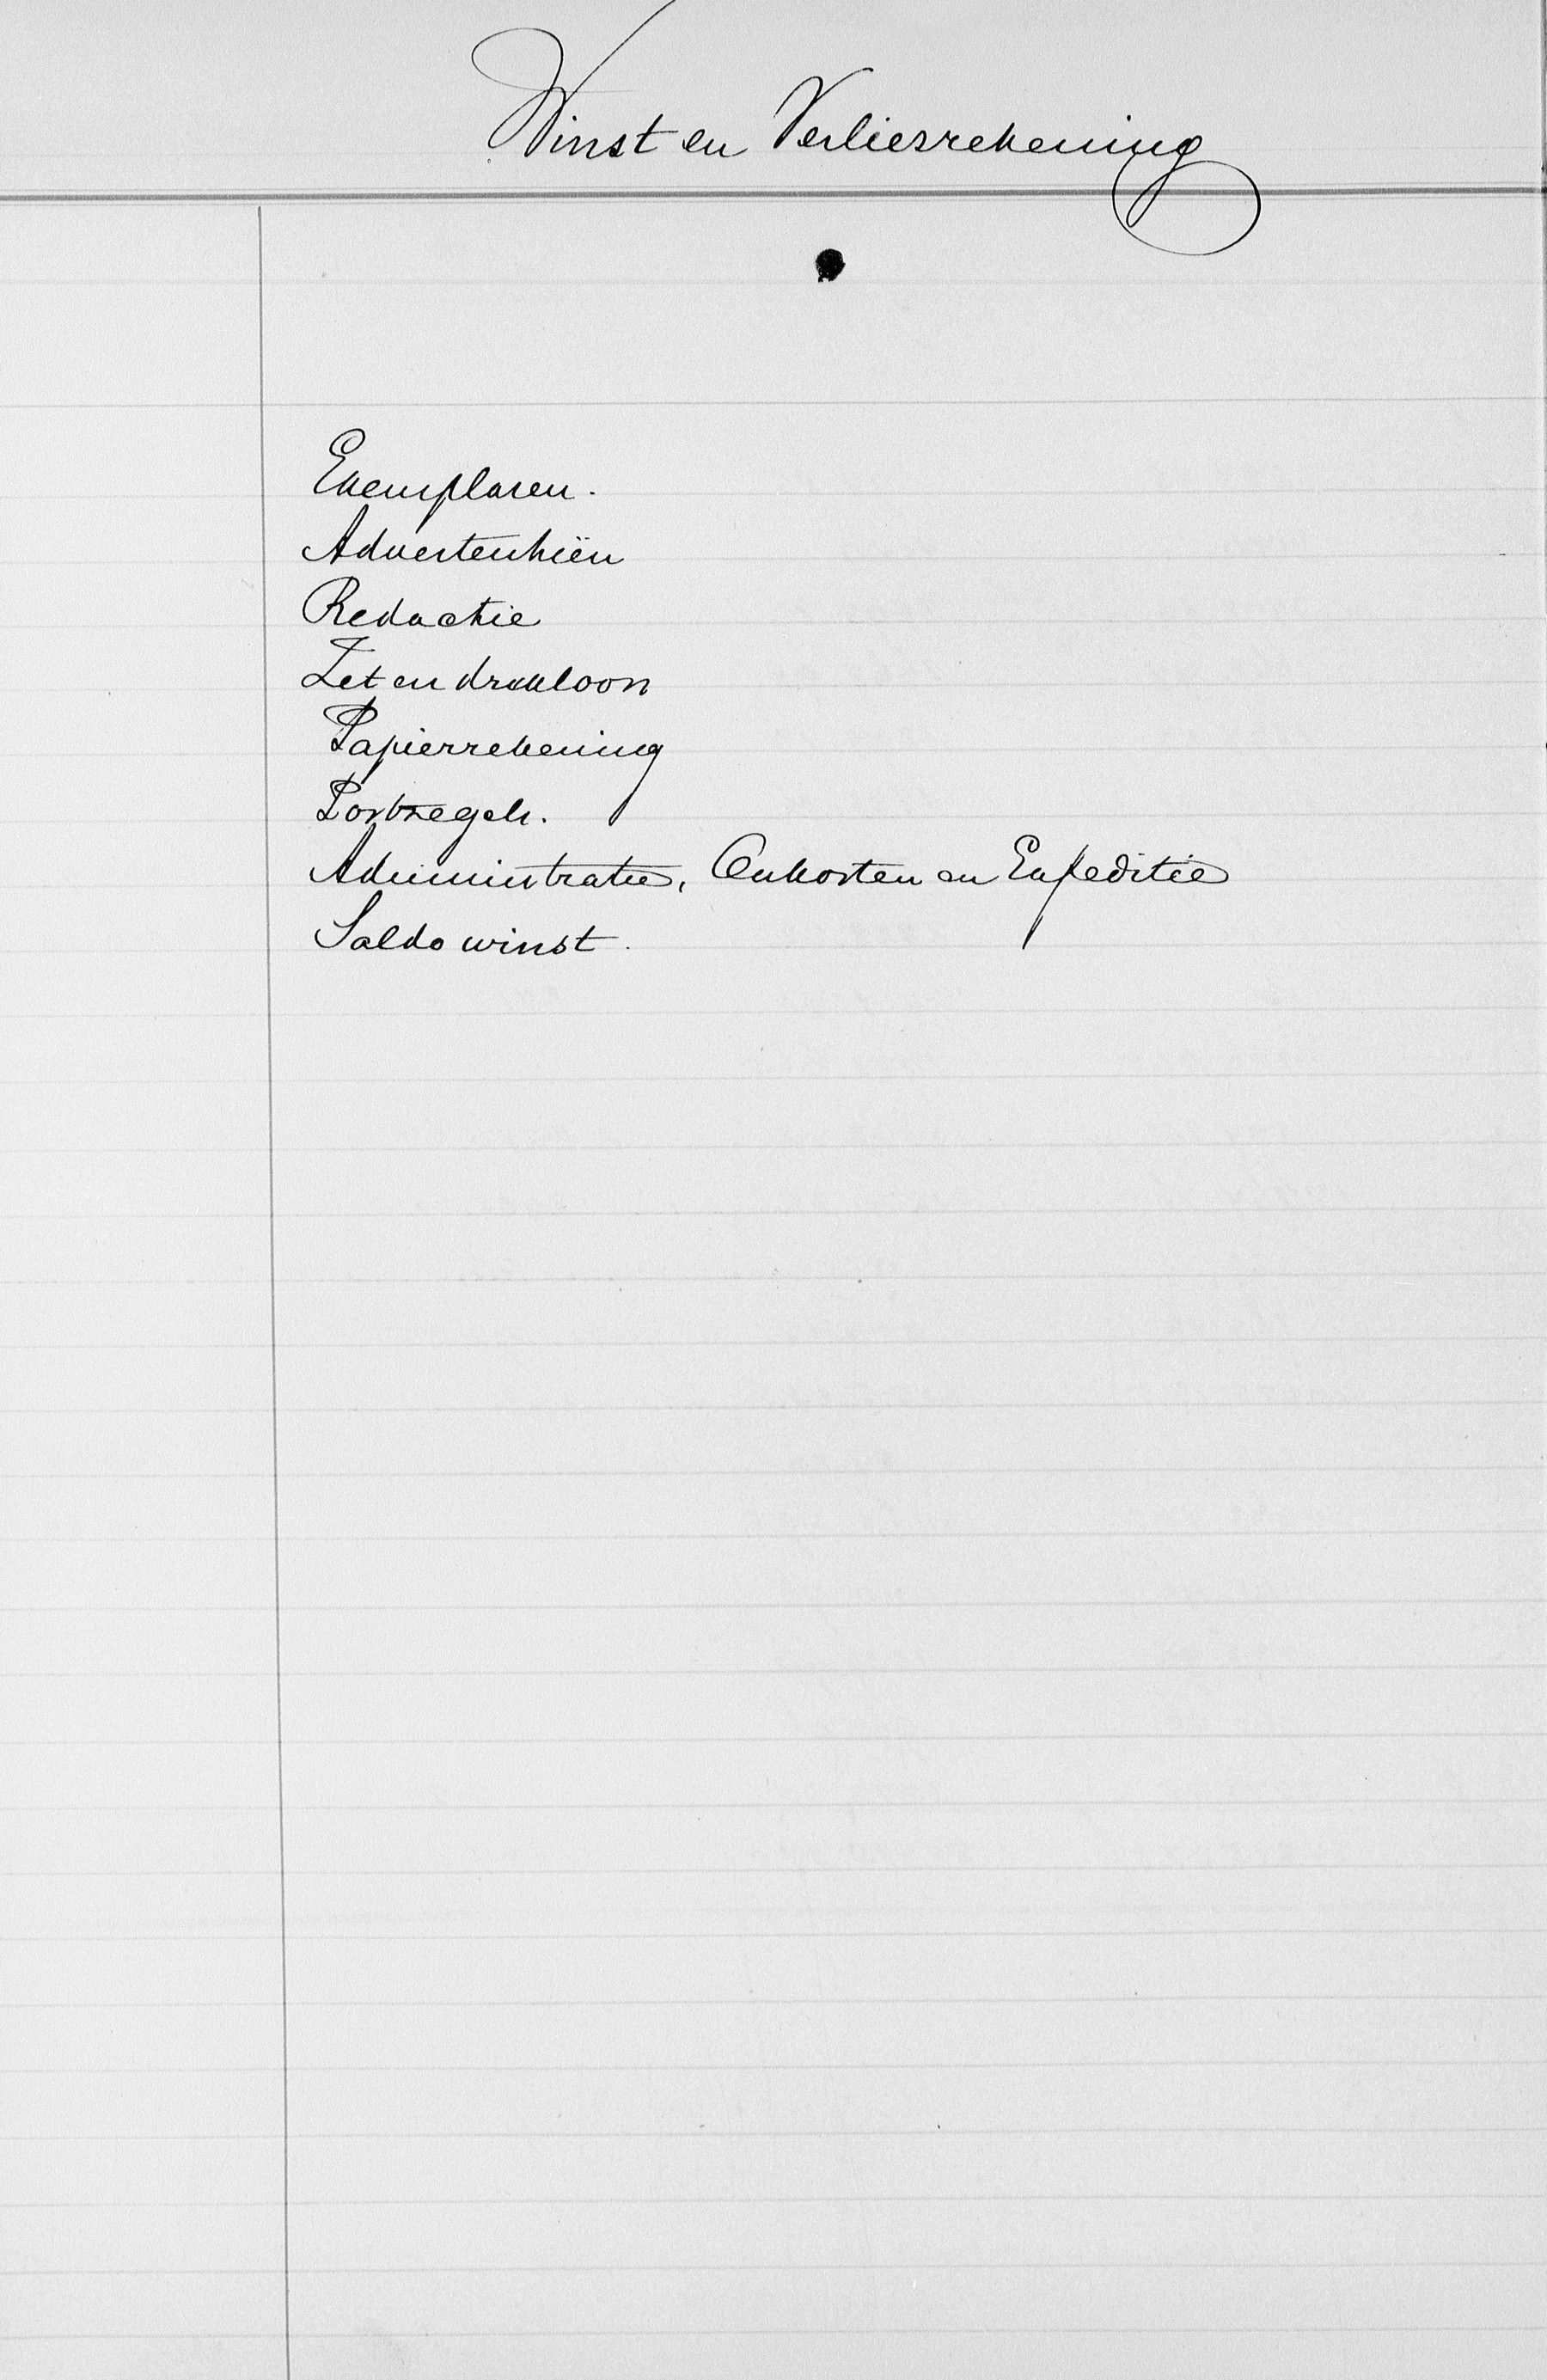 Winst en Verliesrekening
Exemplaren.
Advertentiën
Redactie
Zet en drukloon
Papierrekening
Postzegels.
Administratie, Onkosten en Expeditie
Saldo winst.